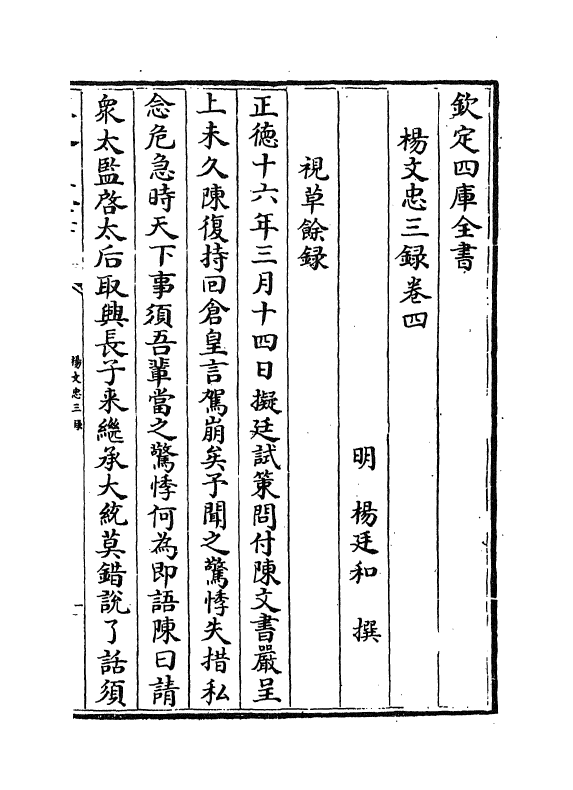 欽定四庫全書
楊文忠三録卷四
明 楊廷和 撰
視草餘録
正德十六年三月十四日擬廷試策問付陳文書嚴呈
上未久陳復持回倉皇言駕崩矣予聞之驚悸失措私
念危急時天下事須吾輩當之驚悸何為即語陳曰請
衆太監啓太后取興長子来繼承大統莫錯說了話須
楊文忠三録
一